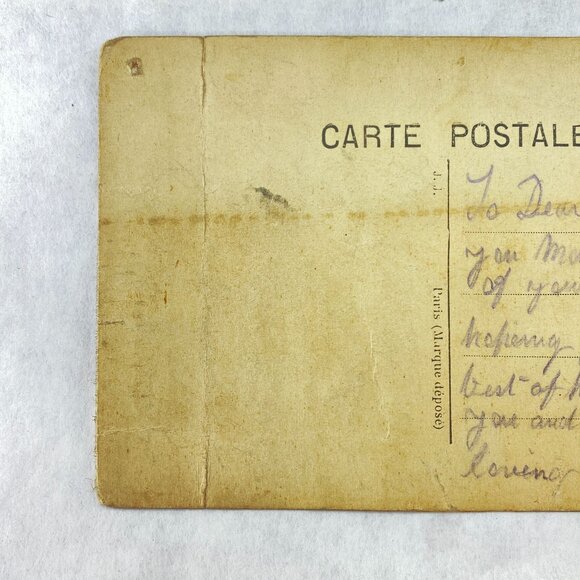 CARTE POSTALE
J. J.
Paris (Marque déposé)
To Dear
you
of you
hopeing
best of
you and
loving